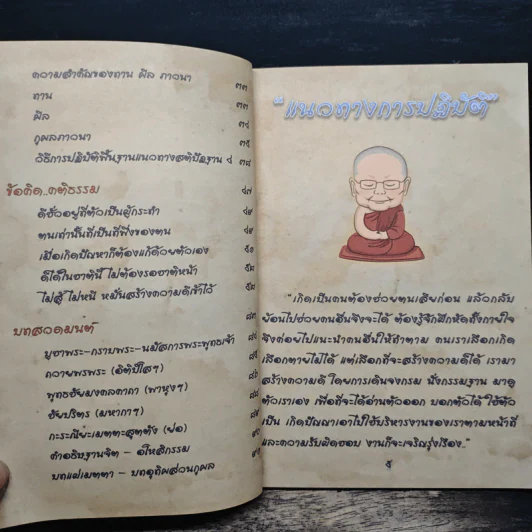 ความสำคัญของทาน ศีล ภาวนา ๓๓
ทาน ๓๓
ศีล ๓๔
กุศลภาวนา ๓๕
วิธีการปฏิบัติพื้นฐานแนวทางสติปัฏฐาน ๔ ๓๙
ข้อคิด..คติธรรม ๔๗
ดีชั่วอยู่ที่ตัวเป็นผู้กระทำ ๔๙
ตนเท่านั้นถึงเป็นที่พึ่งของตน
เมื่อเกิดปัญหาก็ต้องแก้ด้วยตัวเอง
ดีได้ในชาตินี้ ไม่ต้องรอชาติหน้า
ไม่สู้ ไม่หนี หมั่นสร้างความดีเข้าไว้
บทสวดมนต์
บูชาพระ-กราบพระ-นมัสการพระพุทธเจ้า
ถวายพรพระ (อิติปิโสฯ)
พุทธชัยมงคลคาถา (พาหุงฯ)
ชัยปริตร (มหากาฯ)
กะระณียะเมตตะสุตตัง (ย่อ)
คำอธิษฐานจิต - อโหสิกรรม
บทแผ่เมตตา - บทอุทิศส่วนกุศล
"แนวทางการปฏิบัติ"
"เกิดเป็นคนต้องช่วยตนเสียก่อน แล้วกลับ
ย้อนไปช่วยคนอื่นจึงจะได้ ต้องรู้จักฝึกหัดถึงภายใจ
จึงค่อยไปแนะนำคนอื่นให้ทำตาม คนเราเลือกเกิด
เลือกตายไม่ได้ แต่เลือกที่จะสร้างความดีได้ เรามา
สร้างความดี โดยการเดินจงกรม นั่งกรรมฐาน มาดู
ตัวเราเอง เพื่อที่จะได้อ่านตัวออก บอกตัวได้ ใช้ตัว
เป็น เกิดปัญญาเอาไปใช้บริหารงานของเราตามหน้าที่
และความรับผิดชอบ งานก็จะเจริญรุ่งเรือง.."